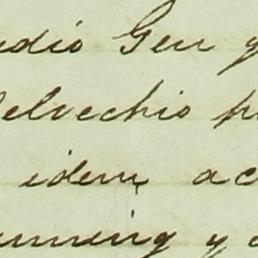 udio Gen y
Delvechio p
idem, ac
unning y c